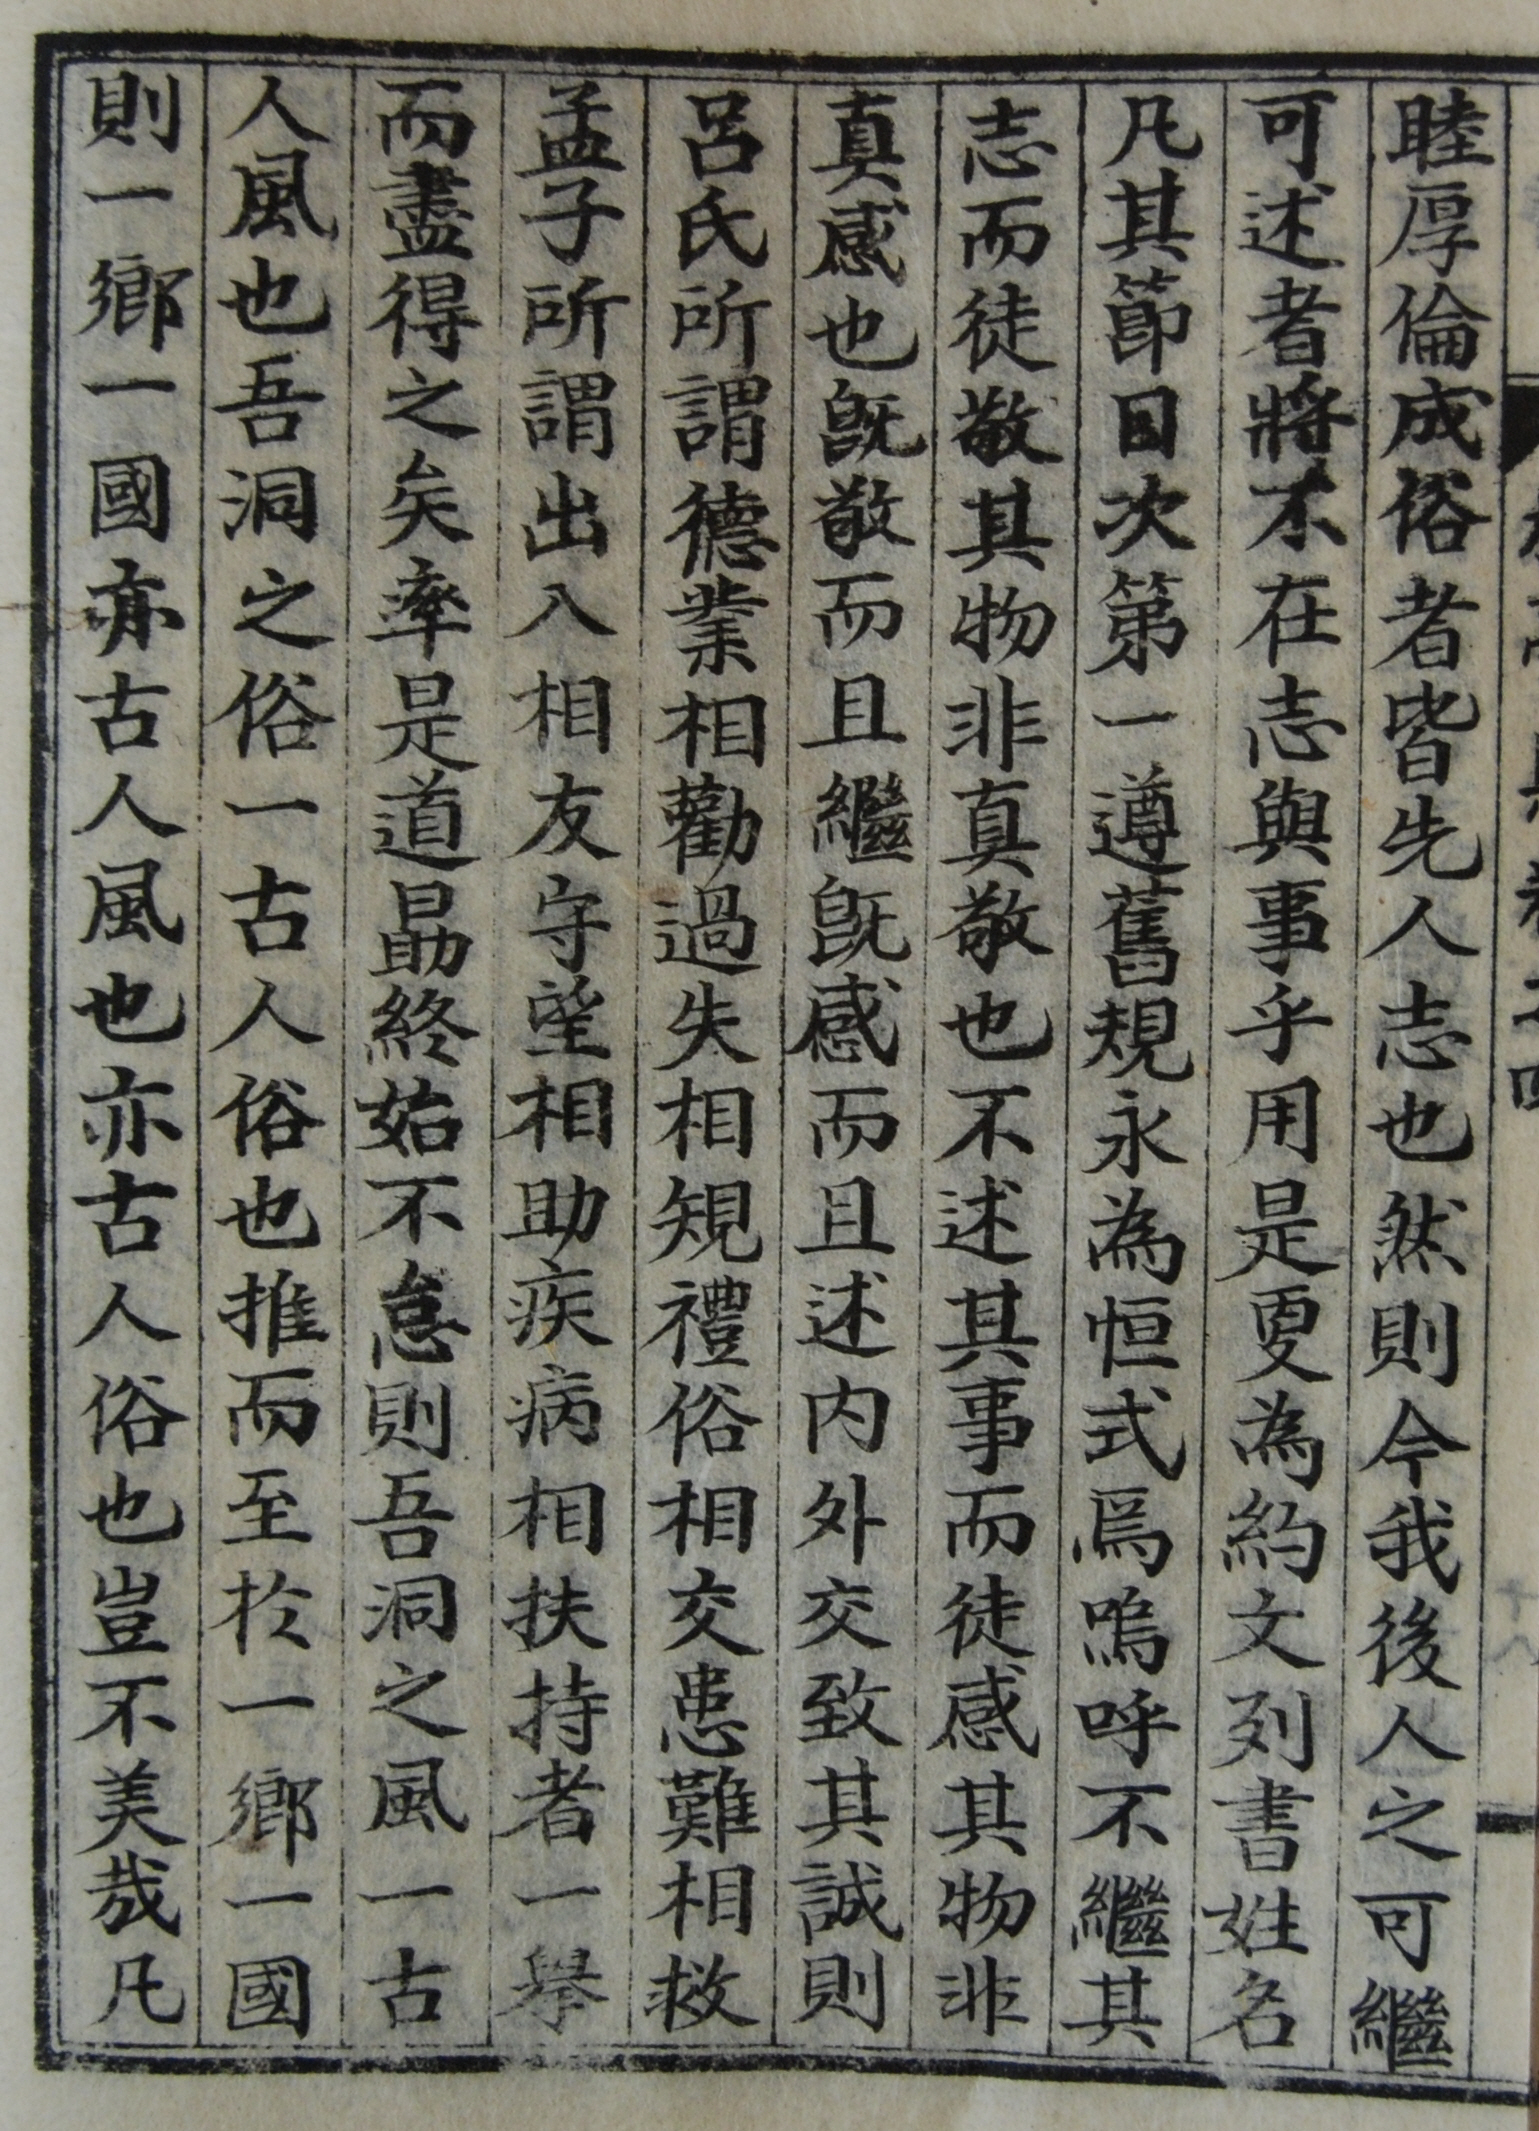 睦厚倫成俗者皆先人志也然則今我後人之可繼
可述者將不在志與事乎用是更為約文列書姓名
凡其節目次第一遵舊規永為恒式焉嗚呼不繼其
志而徒敬其物非真敬也不述其事而徒感其物非
真感也旣敬而且繼旣感而且述内外交致其誠則
呂氏所謂德業相勸過失相規禮俗相交患難相救
孟子所謂出入相友守望相助疾病相扶持者一擧
而盡得之矣率是道勗終始不怠則吾洞之風一古
人風也吾洞之俗一古人俗也推而至於一鄉一國
則一鄉一國亦古人風也亦古人俗也豈不美哉凡